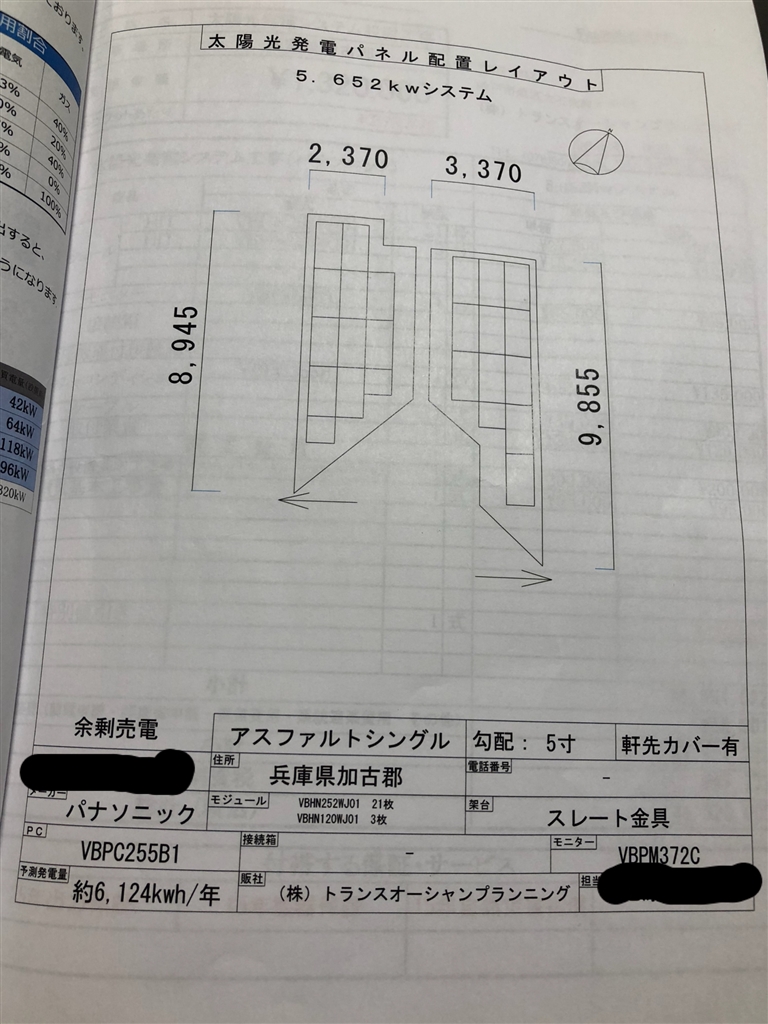 太陽光発電パネル配置レイアウト
5.652kwシステム
2,370
3,370
8,945
9,855
余剰売電
アスファルトシングル
勾配: 5寸
軒先カバー有
住所
兵庫県加古郡
電話番号
-
メーカー
パナソニック
モジュール
VBHN252WJ01 21枚
VBHN120WJ01 3枚
架台
スレート金具
PC
VBPC255B1
接続箱
-
モニター
VBPM372C
予測発電量
約6,124kwh/年
販社
(株)トランスオーシャンプランニング
担当
用割合
電気
ガス
3%
40%
0%
20%
%
40%
%
0%
%
100%
出すると、
うになります
42kW
64kW
118kW
96kW
320kW